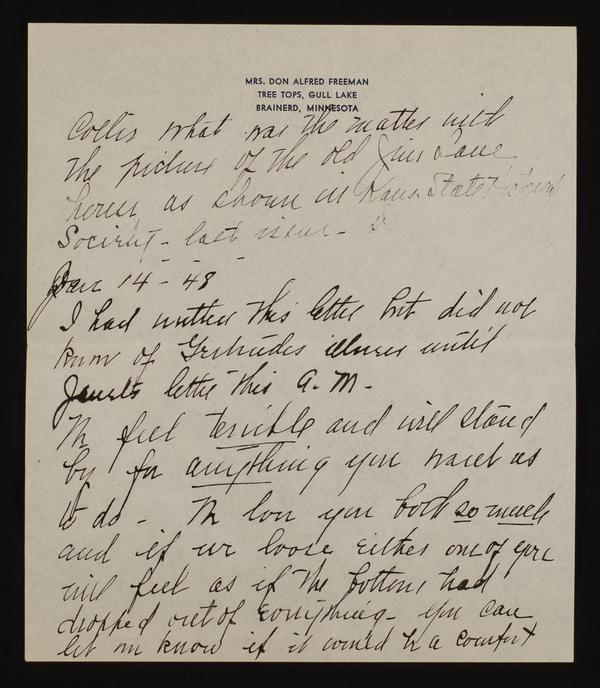 MRS. DON ALFRED FREEMAN
TREE TOPS, GULL LAKE
BRAINERD, MINNESOTA
what was the matter with
the picture of the old Jim Lane
as shown in Kans. State Historical
Society - last issue -
Jan 14 - 48
I had written this letter but did not
know of Gertrudes illness until
letter this A.M. -
We feel terrible and will stand
by for anything you want us
to do - We love you both so much
and if we loose either one of you
will feel as if the bottom had
dropped out of everything - you can
let me know if it would be a comfort